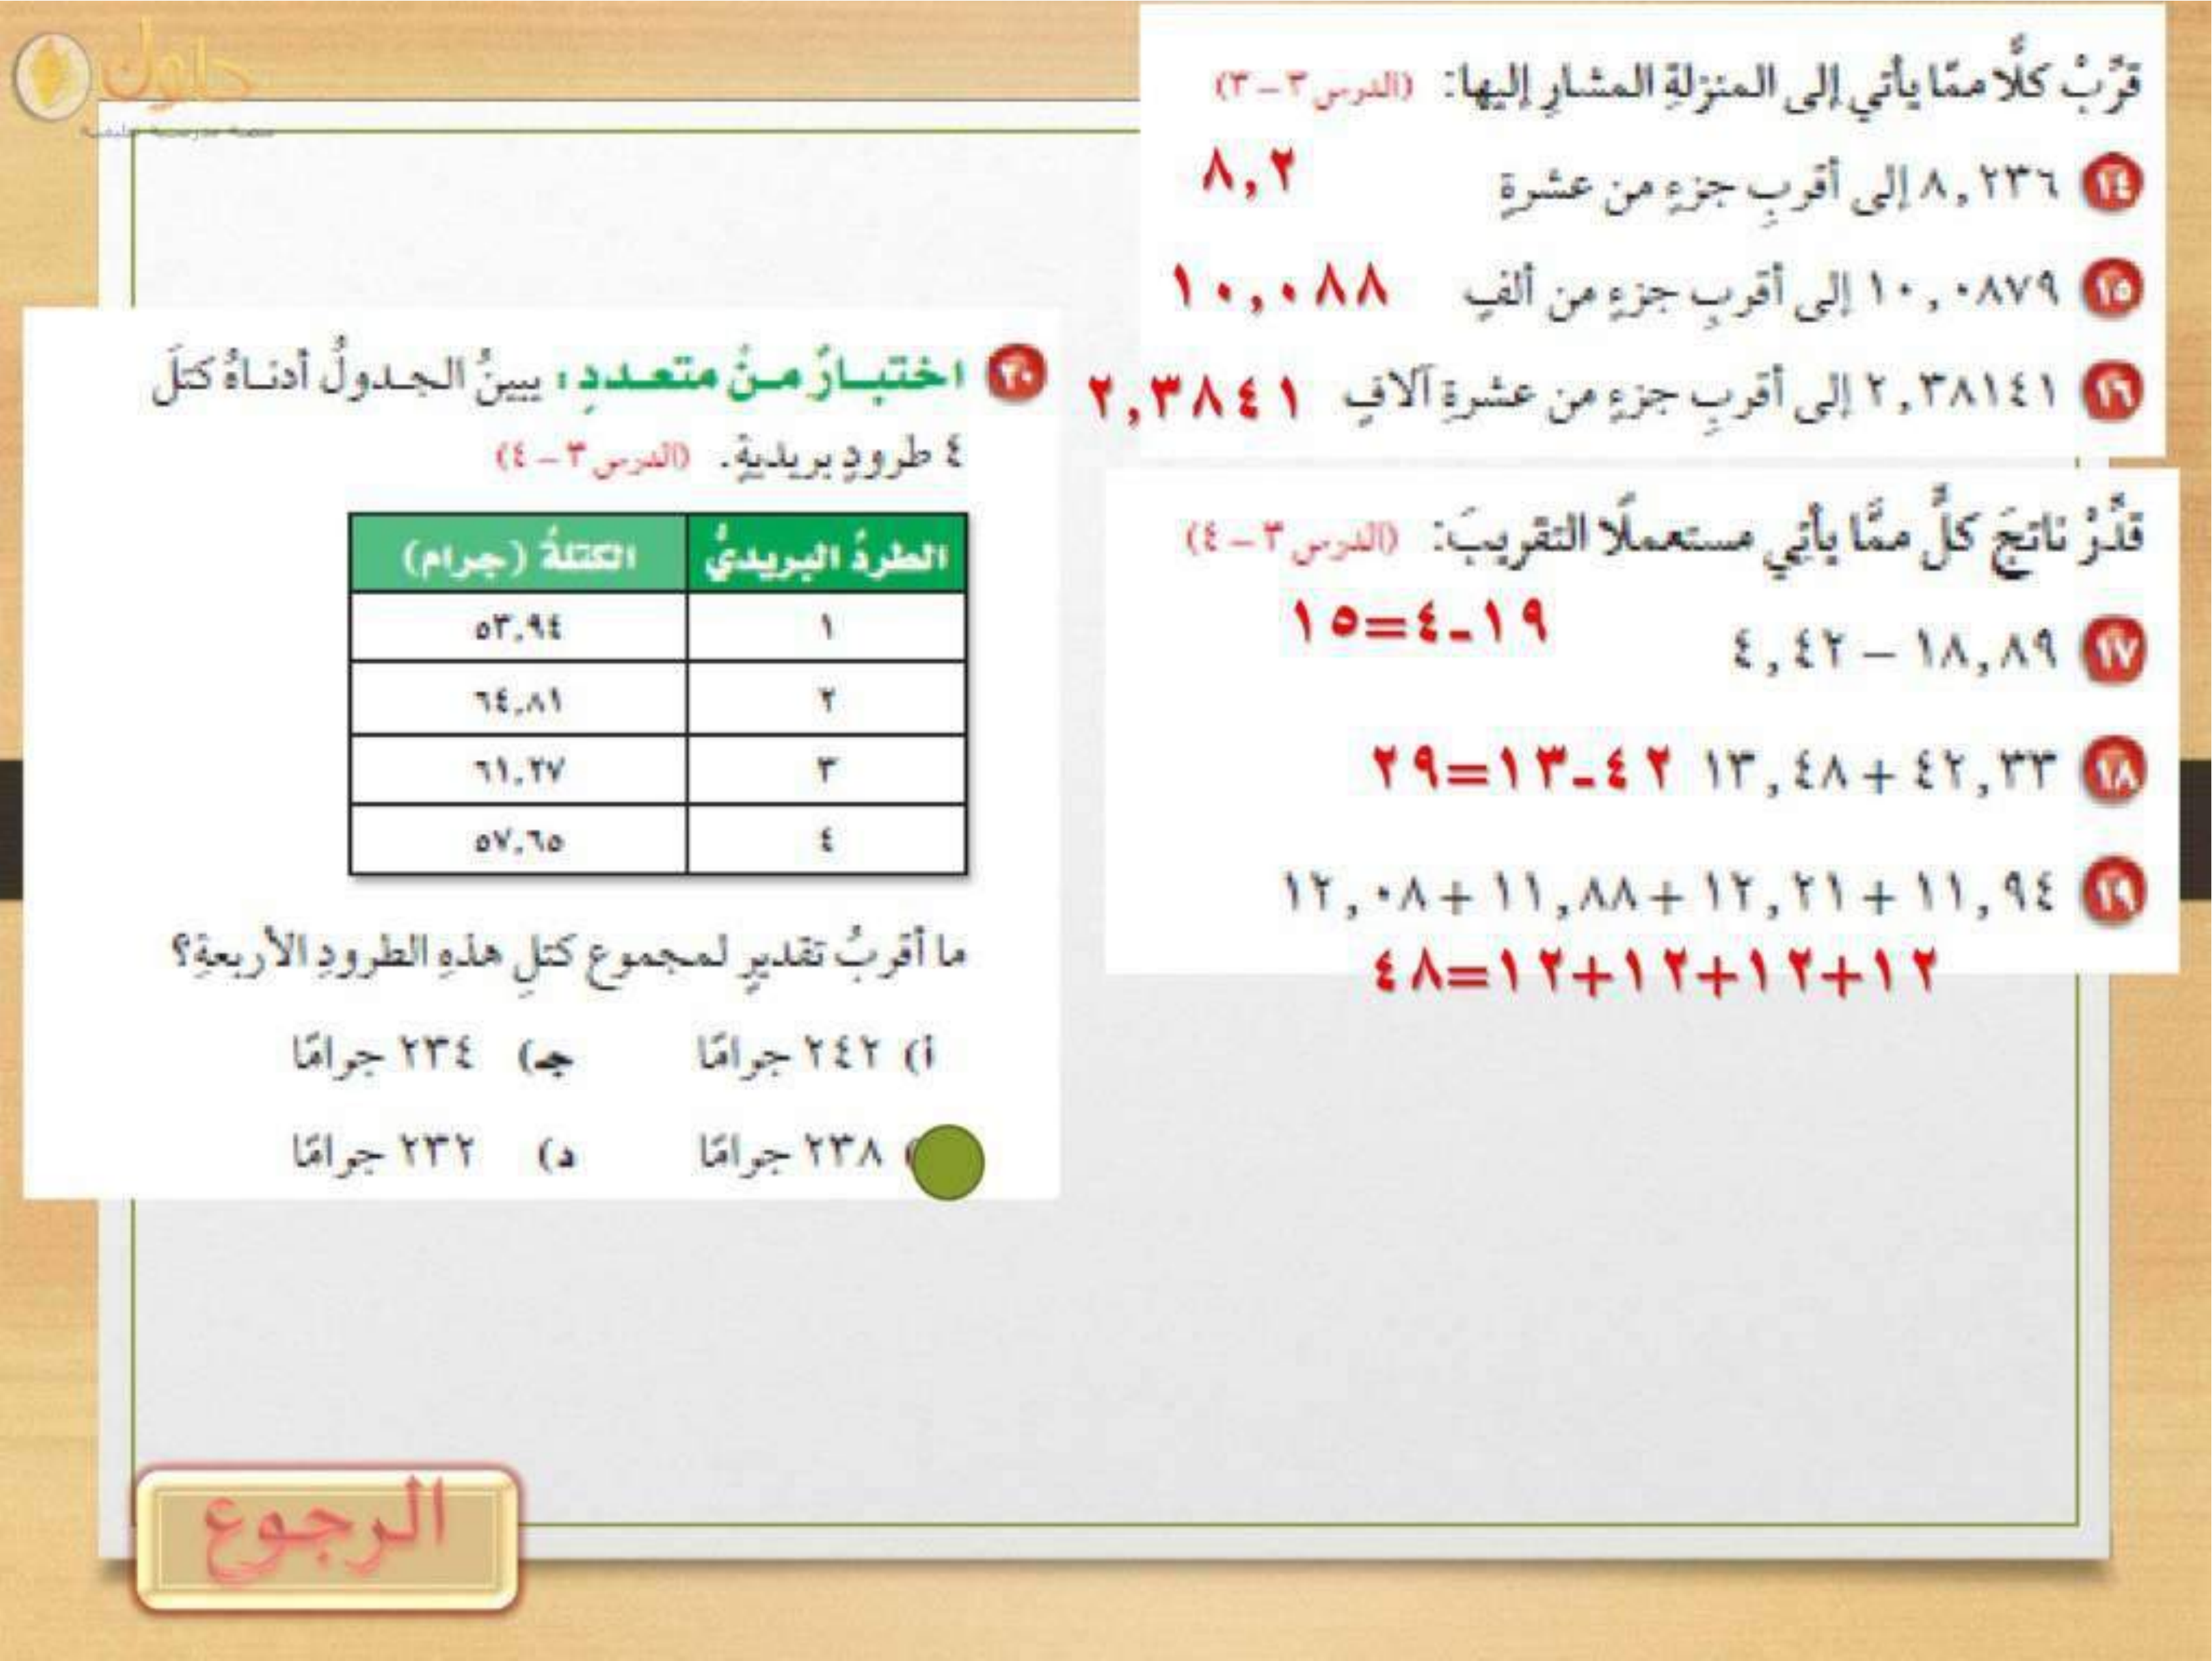 حلول
قرِّبْ كلًّا ممّا يأتي إلى المنزلةِ المشارِ إليها: (الدرس ٣ – ٣)
٢٤ ٨,٢٣٦ إلى أقربِ جزءٍ من عشرةٍ ٨,٢
٢٥ ١٠,٠٨٧٩ إلى أقربِ جزءٍ من ألفٍ ١٠,٠٨٨
٢٦ ٢,٣٨١٤١ إلى أقربِ جزءٍ من عشرةِ آلافٍ ٢,٣٨٤١
قدِّرْ ناتجَ كلٍّ ممَّا يأتي مستعملًا التقريبَ: (الدرس ٣ – ٤)
٢٧ ١٨,٨٩ – ٤,٤٢ ١٩-٤=١٥
٢٨ ٤٢,٣٣ + ١٣,٤٨ ٤٢-١٣=٢٩
٢٩ ١١,٩٤ + ١٢,٢١ + ١١,٨٨ + ١٢,٠٨
١٢+١٢+١٢+١٢=٤٨
٣٠ اختبارٌ منْ متعددٍ: يبينُ الجدولُ أدناهُ كتلَ
٤ طرودٍ بريديةٍ. (الدرس ٣ – ٤)
الطردُ البريديُّ الكتلةُ (جرام)
١ ٥٣,٩٤
٢ ٦٤,٨١
٣ ٦١,٢٧
٤ ٥٧,٦٥
ما أقربُ تقديرٍ لمجموع كتلِ هذهِ الطرودِ الأربعةِ؟
أ) ٢٤٢ جرامًا جـ) ٢٣٤ جرامًا
) ٢٣٨ جرامًا د) ٢٣٢ جرامًا
الرجوع